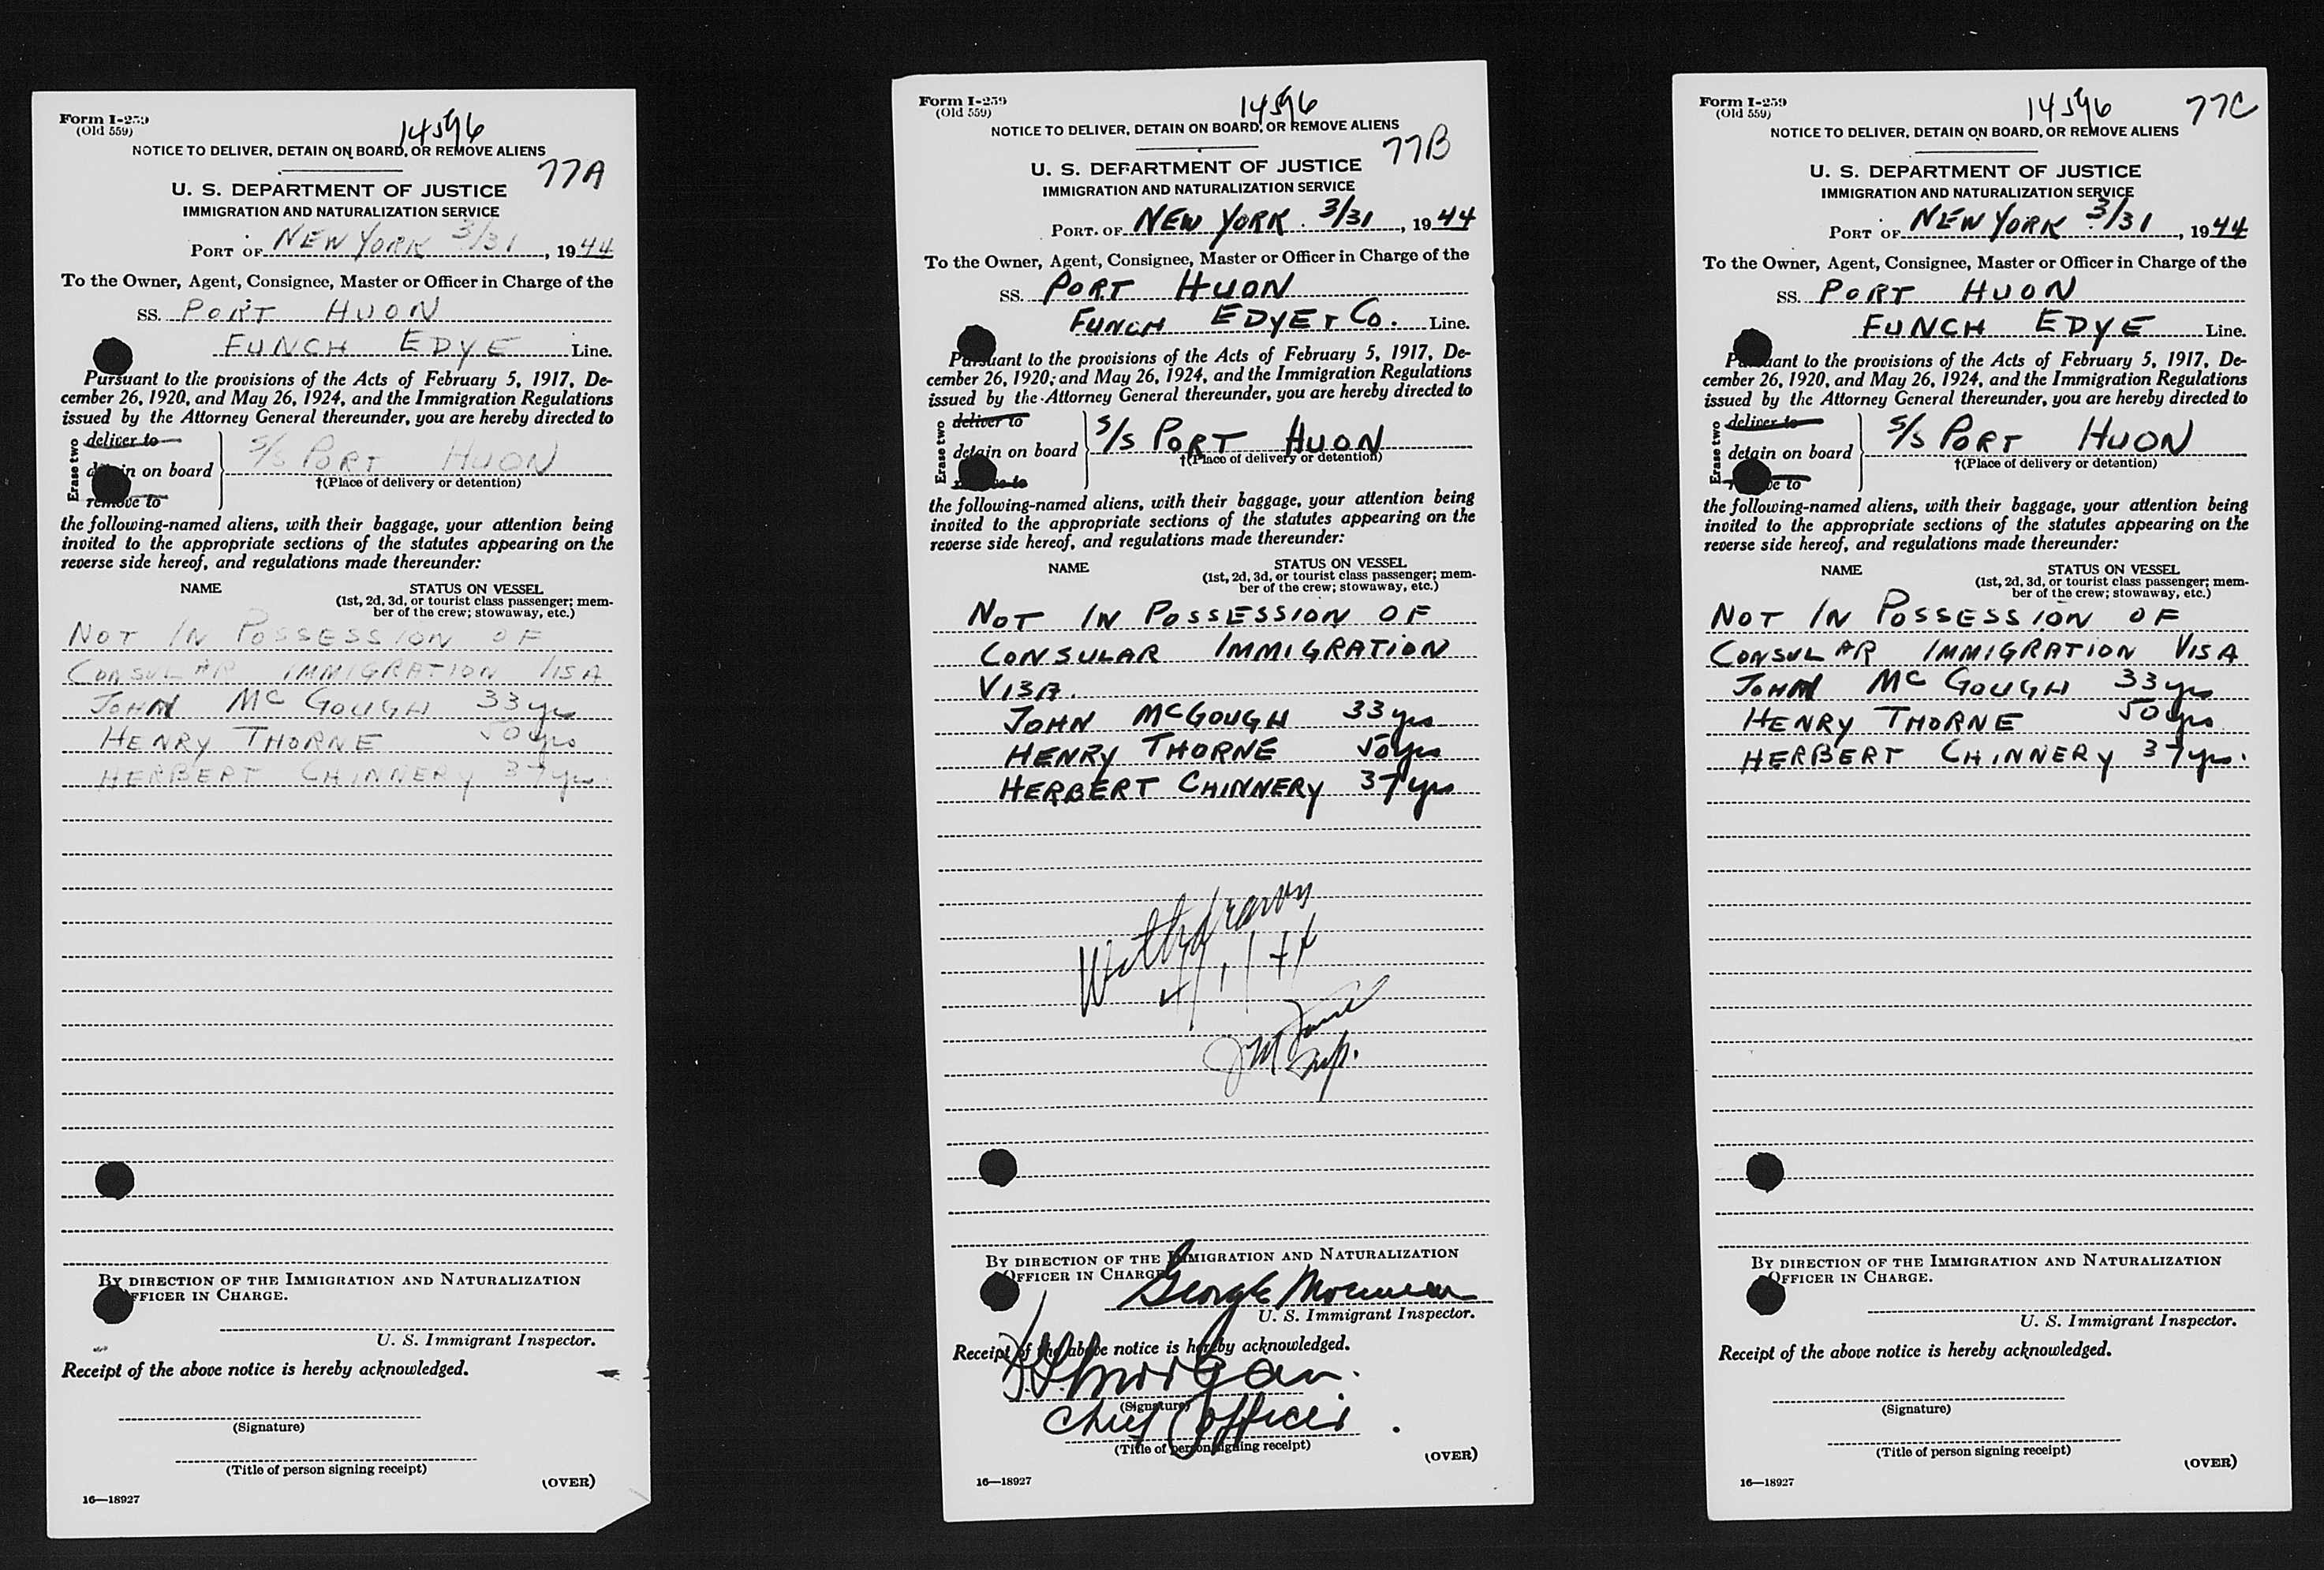 Form I-259
(Old 559)
14596
NOTICE TO DELIVER, DETAIN ON BOARD, OR REMOVE ALIENS
77A
U. S. DEPARTMENT OF JUSTICE
IMMIGRATION AND NATURALIZATION SERVICE
PORT OF NEW YORK 3/31, 1944
To the Owner, Agent, Consignee, Master or Officer in Charge of the
SS. PORT HUON
FUNCH EDYE Line.
Pursuant to the provisions of the Acts of February 5, 1917, De-
cember 26, 1920, and May 26, 1924, and the Immigration Regulations
issued by the Attorney General thereunder, you are hereby directed to
Erase two
deliver to
detain on board
remove to
S/S PORT HUON
†(Place of delivery or detention)
the following-named aliens, with their baggage, your attention being
invited to the appropriate sections of the statutes appearing on the
reverse side hereof, and regulations made thereunder:
NAME STATUS ON VESSEL
(1st, 2d, 3d, or tourist class passenger; mem-
ber of the crew; stowaway, etc.)
NOT IN POSSESSION OF
CONSULAR IMMIGRATION VISA
JOHN MCGOUGH 33 yrs
HENRY THORNE 50 yrs
HERBERT CHINNERY 37 yrs.
BY DIRECTION OF THE IMMIGRATION AND NATURALIZATION
OFFICER IN CHARGE.
U. S. Immigrant Inspector.
Receipt of the above notice is hereby acknowledged.
(Signature)
(Title of person signing receipt)
(OVER)
16—18927
Form I-259
(Old 559)
14596
NOTICE TO DELIVER, DETAIN ON BOARD, OR REMOVE ALIENS
77B
U. S. DEPARTMENT OF JUSTICE
IMMIGRATION AND NATURALIZATION SERVICE
PORT OF NEW YORK. 3/31, 1944
To the Owner, Agent, Consignee, Master or Officer in Charge of the
SS. PORT HUON
FUNCH EDYE & CO. Line.
Pursuant to the provisions of the Acts of February 5, 1917, De-
cember 26, 1920, and May 26, 1924, and the Immigration Regulations
issued by the Attorney General thereunder, you are hereby directed to
Erase two
deliver to
detain on board
remove to
S/S PORT HUON
†(Place of delivery or detention)
the following-named aliens, with their baggage, your attention being
invited to the appropriate sections of the statutes appearing on the
reverse side hereof, and regulations made thereunder:
NAME STATUS ON VESSEL
(1st, 2d, 3d, or tourist class passenger; mem-
ber of the crew; stowaway, etc.)
NOT IN POSSESSION OF
CONSULAR IMMIGRATION
VISA.
JOHN MCGOUGH 33 yrs
HENRY THORNE 50 yrs
HERBERT CHINNERY 37 yrs
Withdrawn
4/1/44
Insp.
BY DIRECTION OF THE IMMIGRATION AND NATURALIZATION
OFFICER IN CHARGE.
George
U. S. Immigrant Inspector.
Receipt of the above notice is hereby acknowledged.
Morgan.
(Signature)
Chief Officer.
(Title of person signing receipt)
(OVER)
16—18927
Form I-259
(Old 559)
14596
77C
NOTICE TO DELIVER, DETAIN ON BOARD, OR REMOVE ALIENS
U. S. DEPARTMENT OF JUSTICE
IMMIGRATION AND NATURALIZATION SERVICE
PORT OF NEW YORK 3/31, 1944
To the Owner, Agent, Consignee, Master or Officer in Charge of the
SS. PORT HUON
FUNCH EDYE Line.
Pursuant to the provisions of the Acts of February 5, 1917, De-
cember 26, 1920, and May 26, 1924, and the Immigration Regulations
issued by the Attorney General thereunder, you are hereby directed to
Erase two
deliver to
detain on board
remove to
S/S PORT HUON
†(Place of delivery or detention)
the following-named aliens, with their baggage, your attention being
invited to the appropriate sections of the statutes appearing on the
reverse side hereof, and regulations made thereunder:
NAME STATUS ON VESSEL
(1st, 2d, 3d, or tourist class passenger; mem-
ber of the crew; stowaway, etc.)
NOT IN POSSESSION OF
CONSULAR IMMIGRATION VISA
JOHN MCGOUGH 33 yrs
HENRY THORNE 50 yrs
HERBERT CHINNERY 37 yrs.
BY DIRECTION OF THE IMMIGRATION AND NATURALIZATION
OFFICER IN CHARGE.
U. S. Immigrant Inspector.
Receipt of the above notice is hereby acknowledged.
(Signature)
(Title of person signing receipt)
(OVER)
16—18927